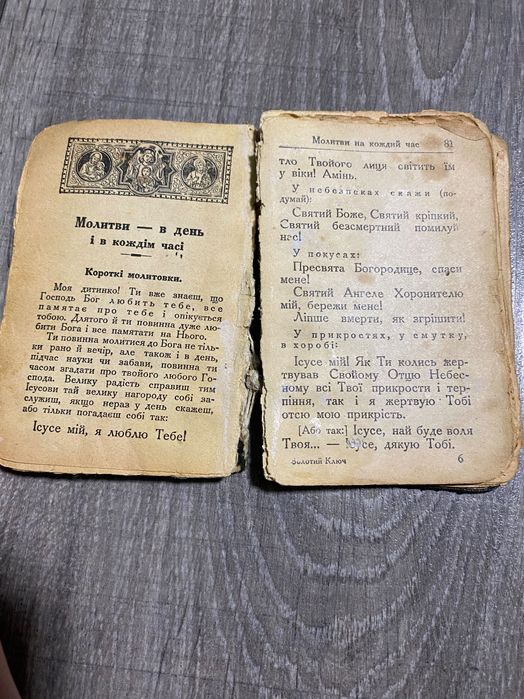 Молитви — в день
і в кождім часі
Короткі молитовки.
Моя дитинко! Ти вже знаєш, що
Господь Бог любить тебе, все
памятає про тебе і опікується
тобою. Длятого й ти повинна дуже лю-
бити Бога і все памятати на Нього.
Ти повинна молитися до Бога не тіль-
ки рано й вечір, але також і в день,
підчас науки чи забави, повинна ти
часом згадати про твойого любого Го-
спода. Велику радість справиш тим
Ісусови тай велику нагороду собі за-
служиш, якщо нераз у день скажеш,
або тільки погадаєш собі так:
Ісусе мій, я люблю Тебе!
Молитви на кождий час 81
тло Твойого лиця світить їм
у віки! Амінь.
У небезпеках скажи (по-
думай):
Святий Боже, Святий кріпкий,
Святий безсмертний помилуй
нас!
У покусах:
Пресвята Богородице, спаси
мене!
Святий Ангеле Хоронителю
мій, бережи мене!
Ліпше вмерти, як згрішити!
У прикростях, у смутку,
в хоробі:
Ісусе мій! Як Ти колись жер-
твував Свойому Отцю Небес-
ному всі Твої прикрости і тер-
піння, так і я жертвую Тобі
отсю мою прикрість.
[Або так:] Ісусе, най буде воля
Твоя... — Ісусе, дякую Тобі.
Золотий Ключ 6